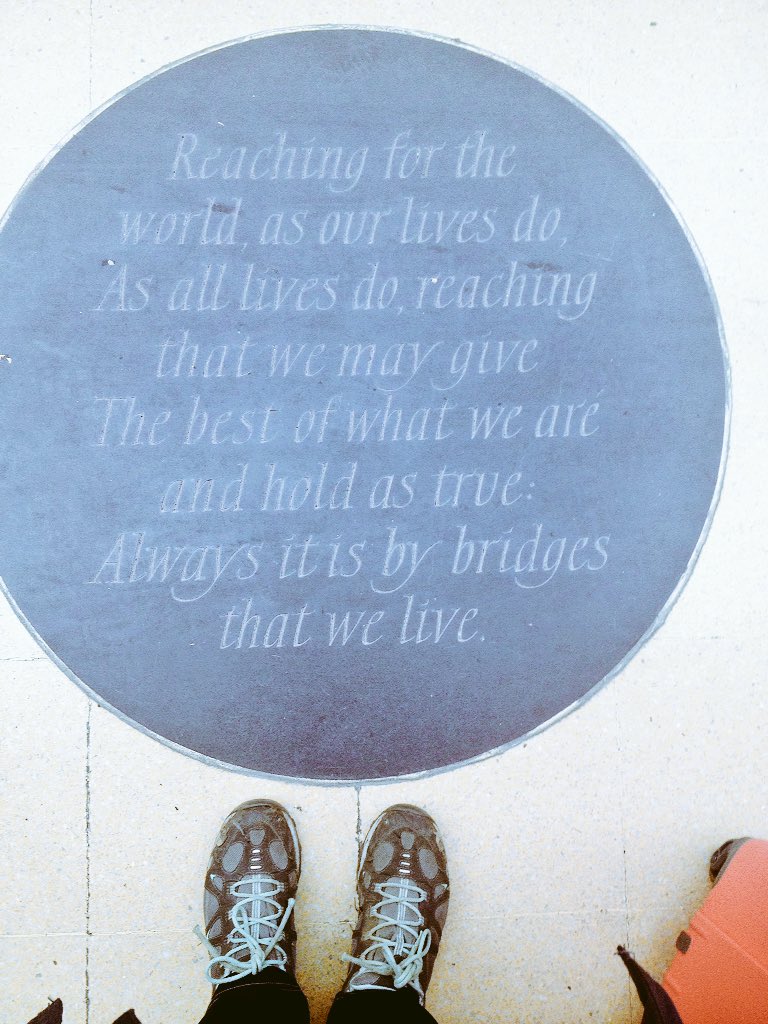 Reaching for the
world, as our lives do,
As all lives do, reaching
that we may give
The best of what we are
and hold as true:
Always it is by bridges
that we live.